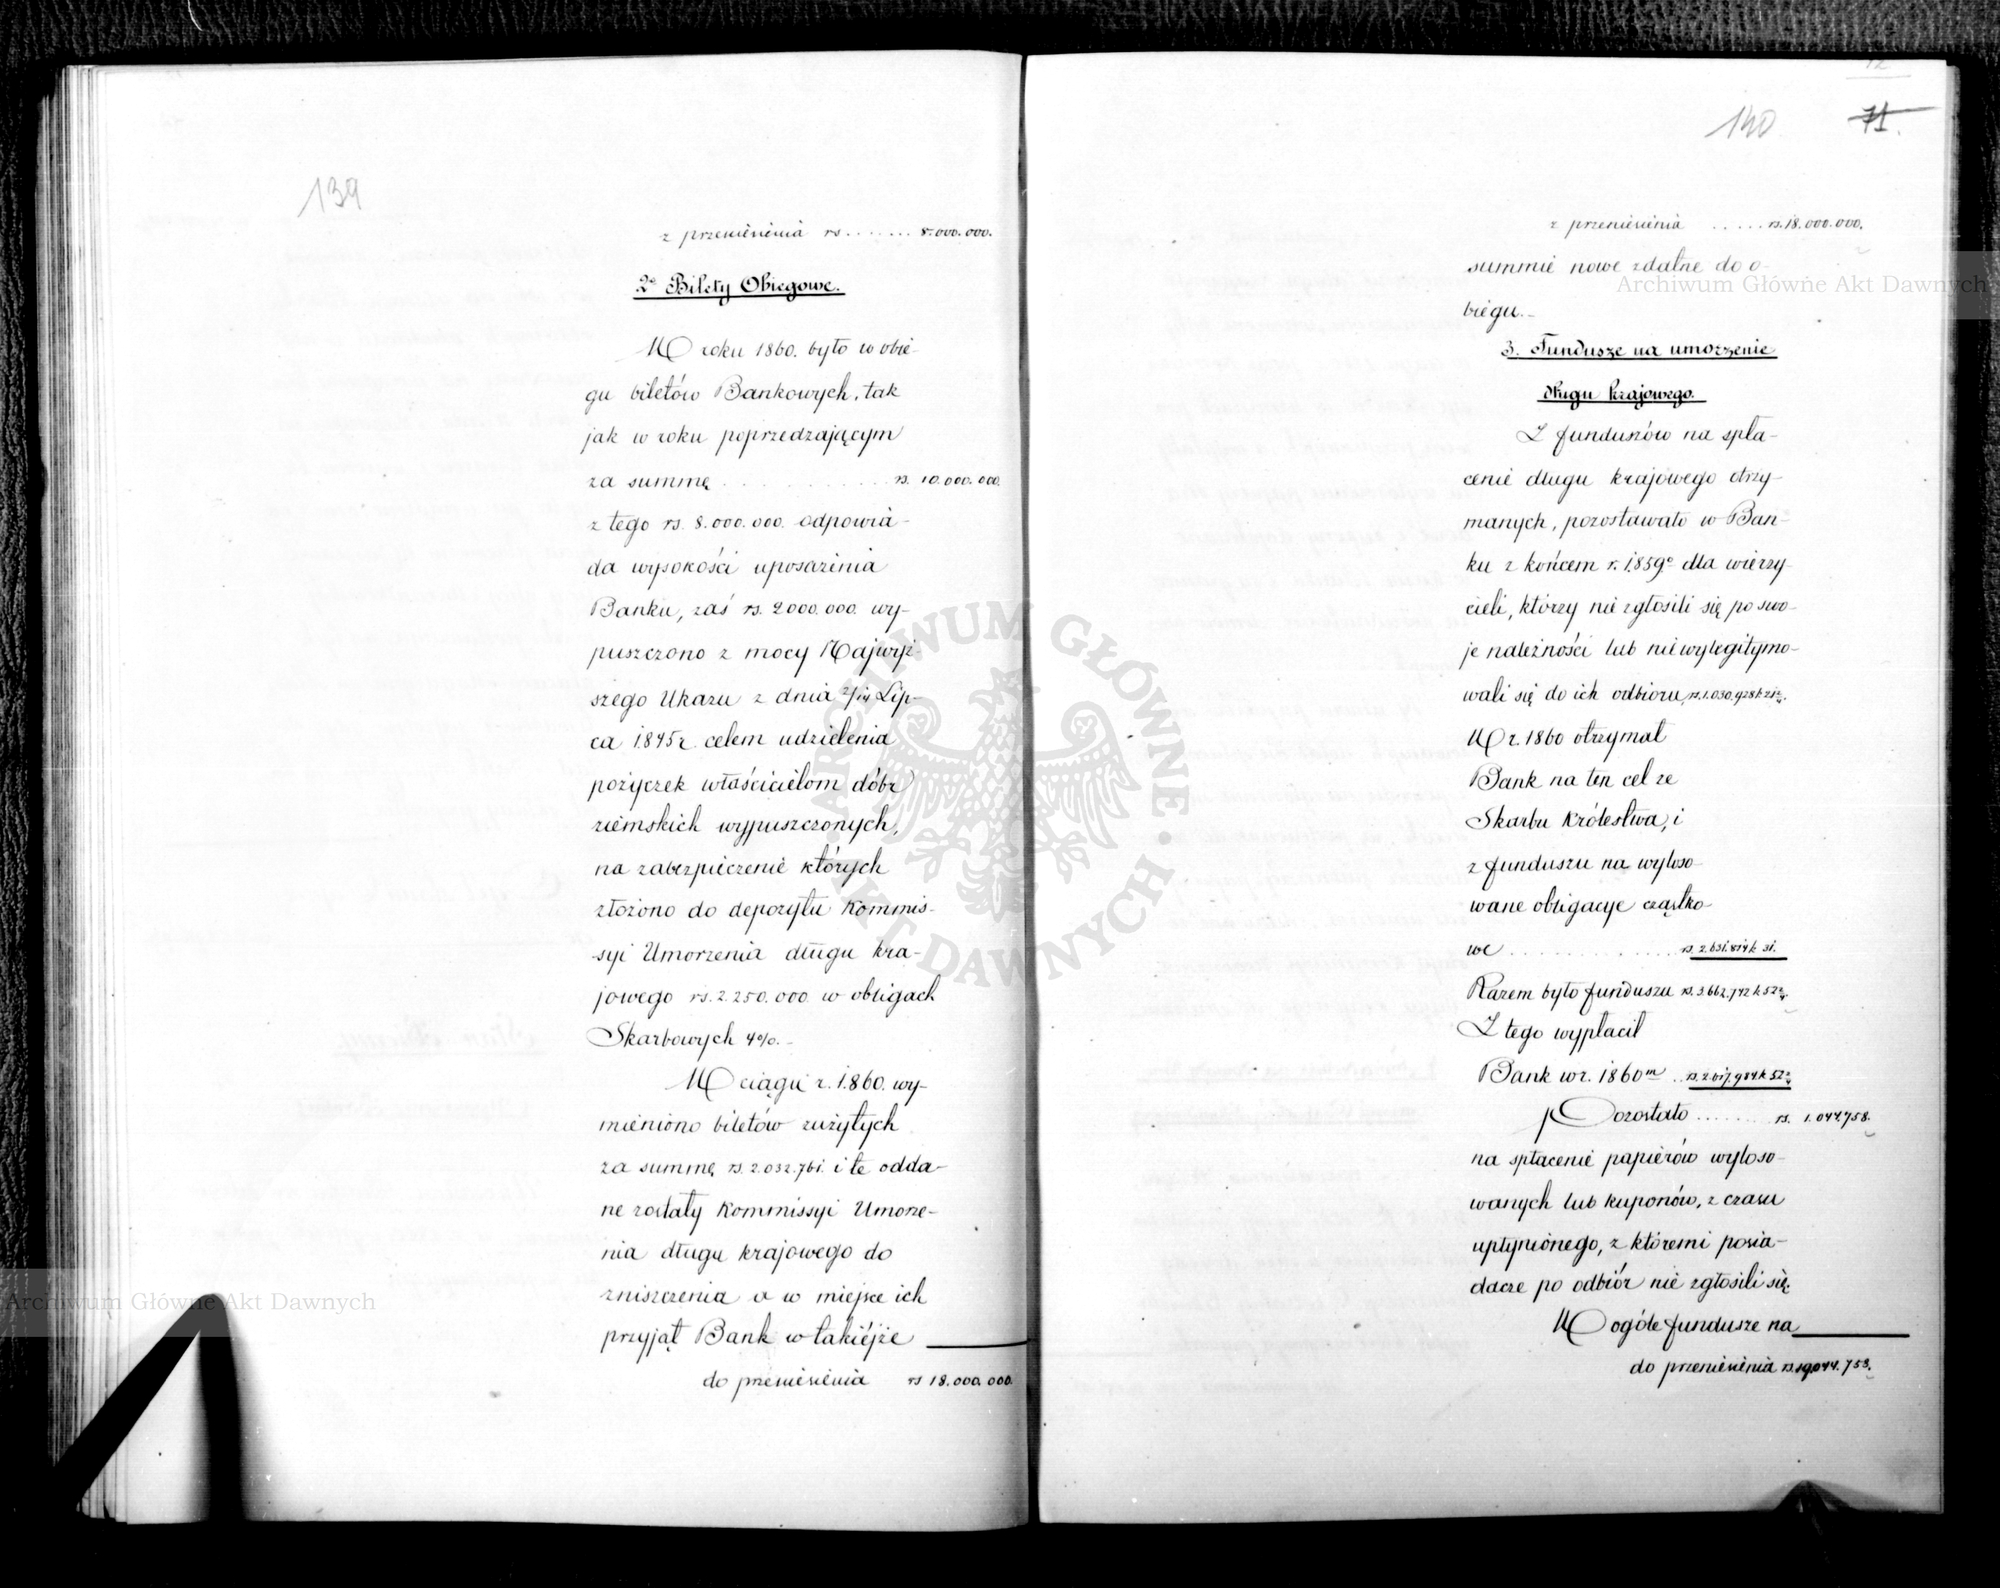 139
z przeniesienia rs ....... 8.000.000.
2o Bilety Obiegowe.
W roku 1860. było w obie-
gu biletów Bankowych, tak
jak w roku poprzedzającym
za summę ............ rs. 10.000.000.
z tego rs. 8.000.000. odpowia-
da wysokości uposażenia
Banku, zaś rs. 2000.000. wy-
puszczono z mocy Najwyż-
szego Ukazu z dnia 2/14 Lip-
ca 1845 r. celem udzielenia
pożyczek właścicielom dóbr
ziemskich wypuszczonych,
na zabezpieczenie których
złożono do depozytu Kommis-
syi Umorzenia długu kra-
jowego rs. 2.250.000 w obligach
Skarbowych 4%.-
W ciągu r. 1860. wy-
mieniono biletów zużytych
za summę rs. 2.032.761. i te odda-
ne zostały Kommissyi Umorze-
nia długu krajowego do
zniszczenia a w miejsce ich
przyjął Bank w takiéjże
do przeniesienia rs 18.000.000.
140
71.
z przeniesienia ..... rs. 18.000.000.
summie nowe zdatne do o-
biegu.-
3. Fundusze na umorzenie
długu krajowego.
Z funduszów na spła-
cenie długu krajowego otrzy-
manych, pozostawało w Ban-
ku z końcem r. 1859o dla wierzy-
cieli, którzy nie zgłosili się po swo-
je należności lub nie wylegitymo-
wali się do ich odbioru, rs. 1.030.928 k 21 2/4.
W r. 1860 otrzymał
Bank na ten cel ze
Skarbu Królestwa, i
z funduszu na wyloso-
wane obligacye cząstko-
we ............ rs 2.631.814 k 31.
Razem było funduszu rs. 3.662.742 k 52 2/4.
Z tego wypłacił
Bank w r. 1860m .. rs. 2.617.984 k 52 2/4
Pozostało ...... rs. 1.044.758.
na spłacenie papierów wyloso-
wanych lub kuponów, z czasu
upłynionego, z któremi posia-
dacze po odbiór nie zgłosili się.
W ogóle fundusze na
do przeniesienia rs. 19.044.758.
Archiwum Główne Akt Dawnych
Archiwum Główne Akt Dawnych
ARCHIWUM GŁÓWNE • AKT DAWNYCH •